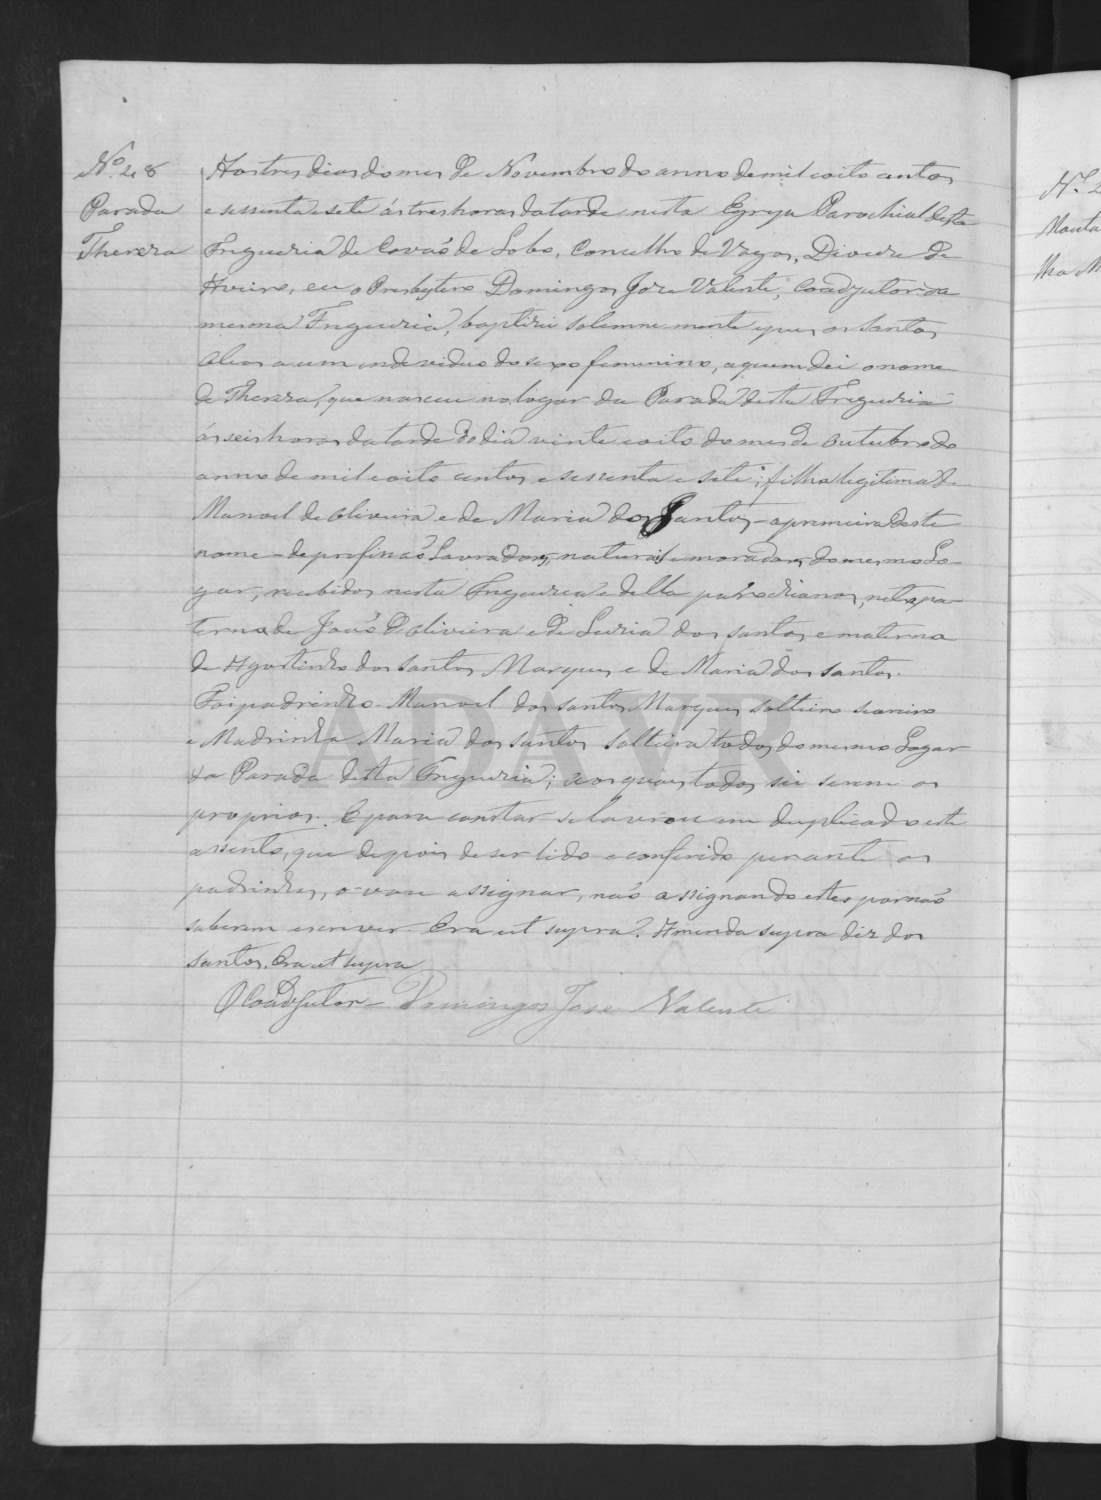 Nº 28
Parada
Thereza
Aos tres dias do mes de Novembro do anno de mil e oito centos
e sessenta e sete ás tres horas da tarde nesta Egreja Parochial desta
Freguezia de Covaõ de Lobo, Concelho de Vagos, Diocese de
Aveiro, eu o Presbytero Domingos Joze Valente, Coadjutor da
mesma Freguezia, baptizei solemne mente e puz os Santos
oleos a um individuo do sexo femenino, a quem dei o nome
de Thereza, que nasceu no logar da Parada desta Freguezia
ás seis horas da tarde do dia vinte e oito do mes de Outubro do
anno de mil e oito centos e sessenta e sete; filha legitima de
Manoel de Oliveira e de Maria dos Santos - a primeira deste
nome - de profissaõ Lavradores, naturais e moradores do mesmo Lo-
gar, recebidos nesta Freguezia e della parochianos, neta pa-
terna de Joaõ d'Oliveira e de Luzia dos santos e materna
de Agostinho dos Santos Marques e de Maria dos santos.
Foi padrinho Manoel dos santos Marques solteiro
e Madrinha Maria dos santos solteira todos do mesmo Logar
da Parada desta Freguezia; os quaes todos sei serem os
proprios. E para constar se lavrou em duplicado este
assento, que depois de ser lido e conferido perante os
padrinhos, o vou assignar, naõ assignando estes por naõ
saberem escrever. Era ut supra. Amenda supra diz dos
santos. Era ut supra
O Coadjutor - Domingos Joze Valente
Nº 2